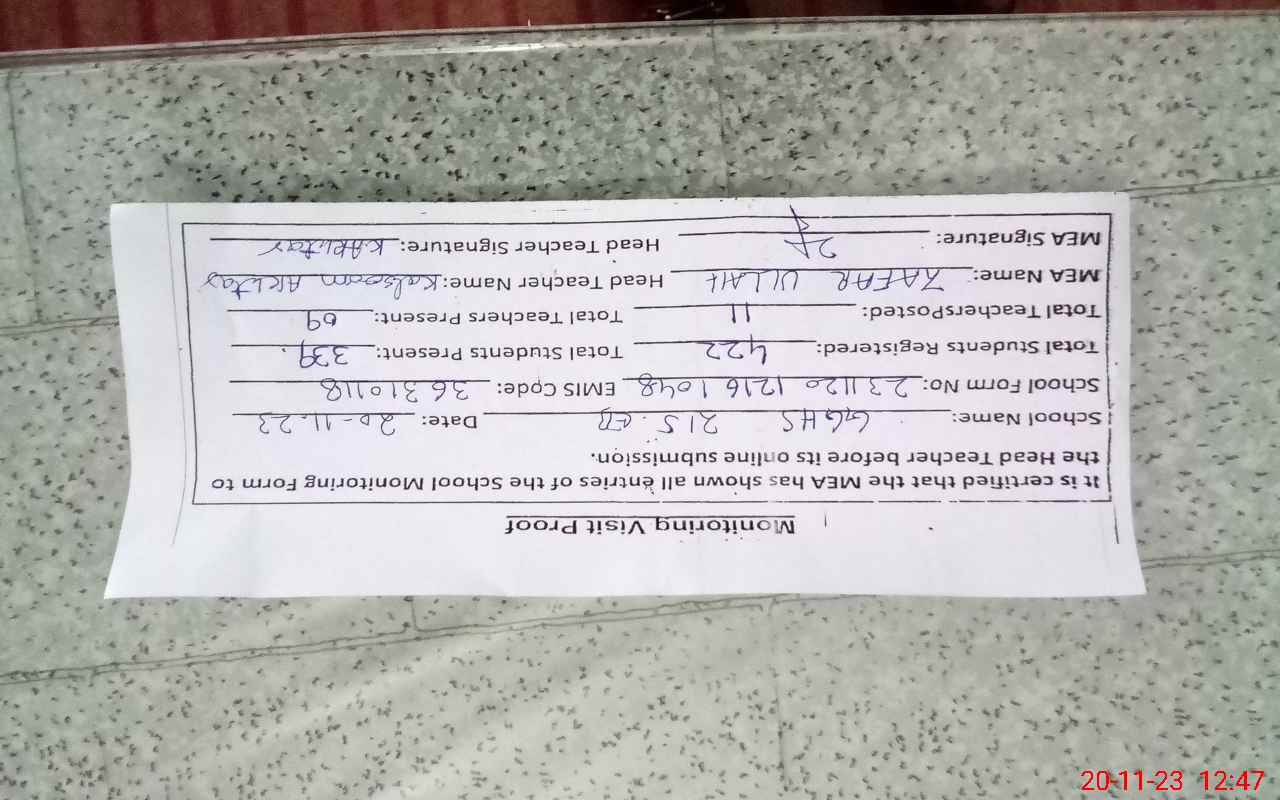 Monitoring Visit Proof
It is certified that the MEA has shown all entries of the School Monitoring Form to
the Head Teacher before its online submission.
School Name: GGHS 215. EB Date: 20-11-23
School Form No: 231120 1216 1048 EMIS Code: 36310118
Total Students Registered: 422 Total Students Present: 339.
Total TeachersPosted: 11 Total Teachers Present: 09
MEA Name: ZAFAR ULLAH Head Teacher Name: Kalsoom Akhtar
MEA Signature: Head Teacher Signature: K.Akhtar
20-11-23 12:47